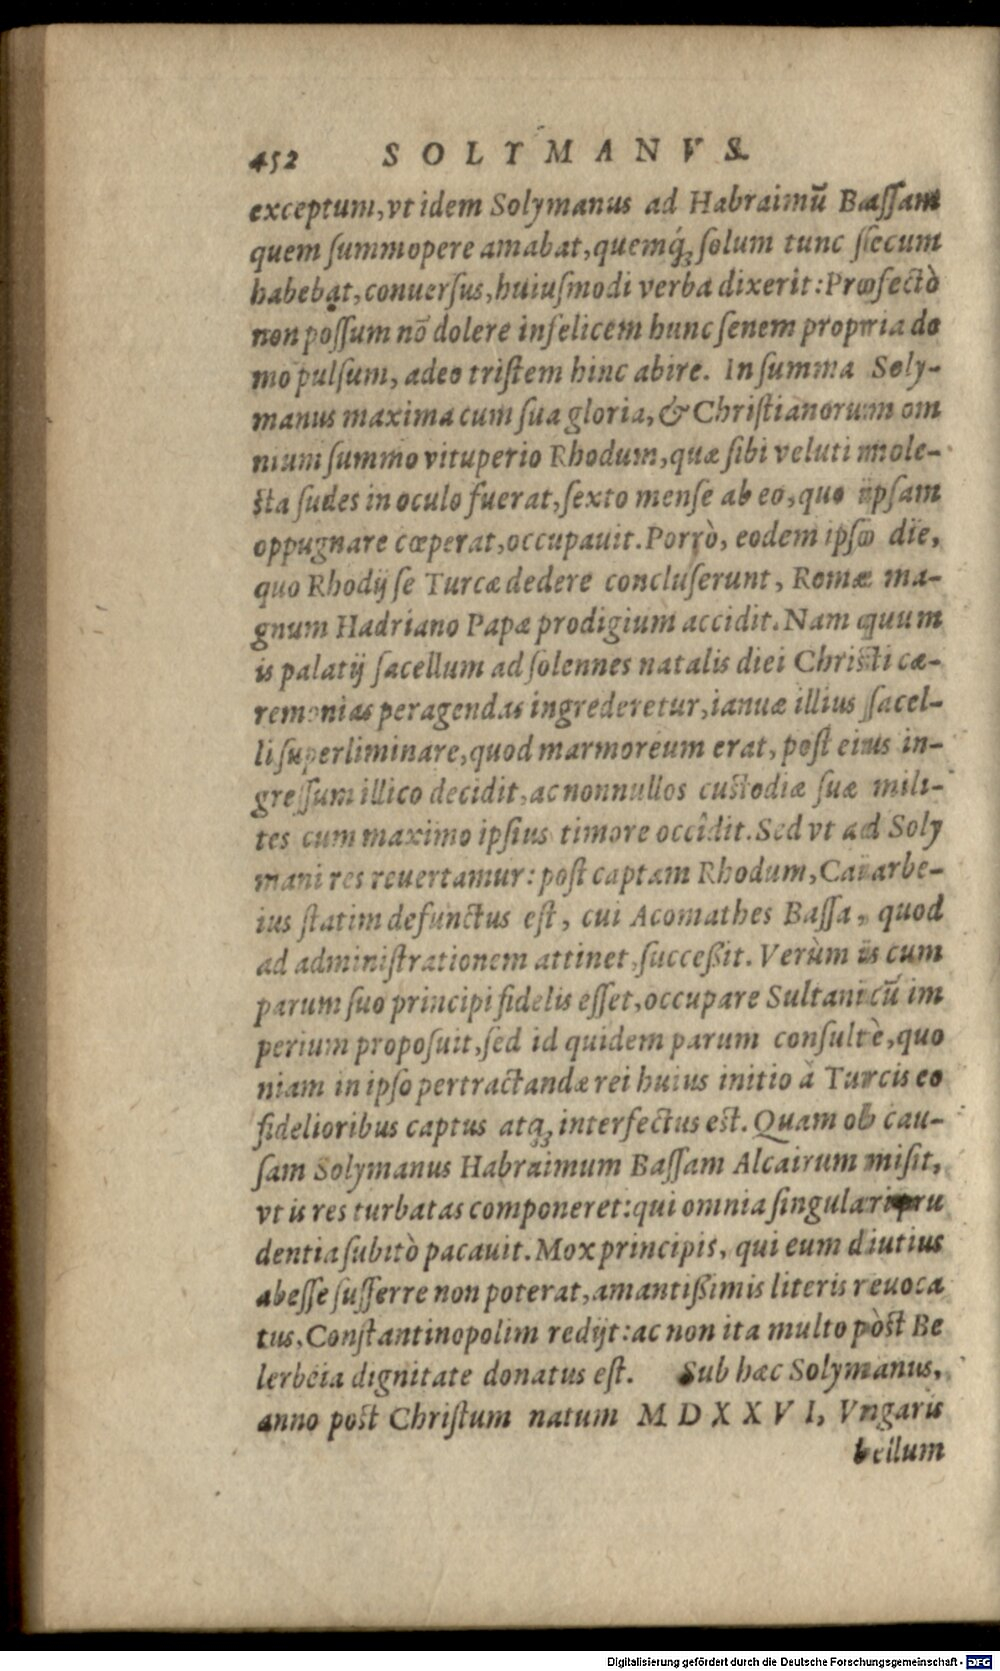 452 SOLYMANVS.
exceptum, vt idem Solymanus ad Habraimũ Baſſam
quem ſummopere amabat, quemq́ꝫ ſolum tunc ſecum
habebat, conuerſus, huiuſmodi verba dixerit: Profectò
non poſſum nõ dolere infelicem hunc ſenem propria do
mo pulſum, adeo triſtem hinc abire. In ſumma Soly-
manus maxima cum ſua gloria, & Chriſtianorum om
nium ſummo vituperio Rhodum, quæ ſibi veluti mole-
ſta ſudes in oculo fuerat, ſexto menſe ab eo, quo ipſam
oppugnare cœperat, occupauit. Porrò, eodem ipſo die,
quo Rhodij ſe Turcæ dedere concluſerunt, Romæ ma-
gnum Hadriano Papæ prodigium accidit. Nam quum
is palatij ſacellum ad ſolennes natalis diei Chriſti cæ-
remonias peragendas ingrederetur, ianuæ illius ſacel-
li ſuperliminare, quod marmoreum erat, poſt eius in-
greſſum illico decidit, ac nonnullos cuſtodiæ ſuæ mili-
tes cum maximo ipſius timore occîdit. Sed vt ad Soly
mani res reuertamur: poſt captam Rhodum, Caiarbe-
ius ſtatim defunctus eſt, cui Acomathes Baſſa, quod
ad adminiſtrationem attinet, ſucceßit. Verùm is cum
parum ſuo principi fidelis eſſet, occupare Sultanicũ im
perium propoſuit, ſed id quidem parum conſultè, quo
niam in ipſo pertractandæ rei huius initio à Turcis eo
fidelioribus captus atqꝫ interfectus eſt. Quam ob cau-
ſam Solymanus Habraimum Baſſam Alcairum miſit,
vt is res turbatas componeret: qui omnia ſingulari pru
dentia ſubitò pacauit. Mox principis, qui eum diutius
abeſſe ſufferre non poterat, amantißimis literis reuoca
tus, Conſtantinopolim redijt: ac non ita multo pòſt Be
lerbeia dignitate donatus eſt. Sub hæc Solymanus,
anno poſt Chriſtum natum M D X X V I, Vngaris
bellum
Digitalisierung gefördert durch die Deutsche Forschungsgemeinschaft - DFG